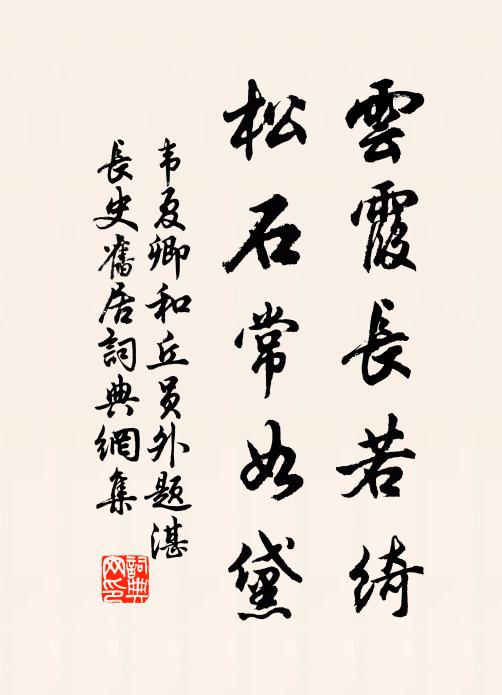 雲霞長若綺
松石常如黛
韦夏卿和丘員外題湛
長史舊居詞典網集
詞典网印